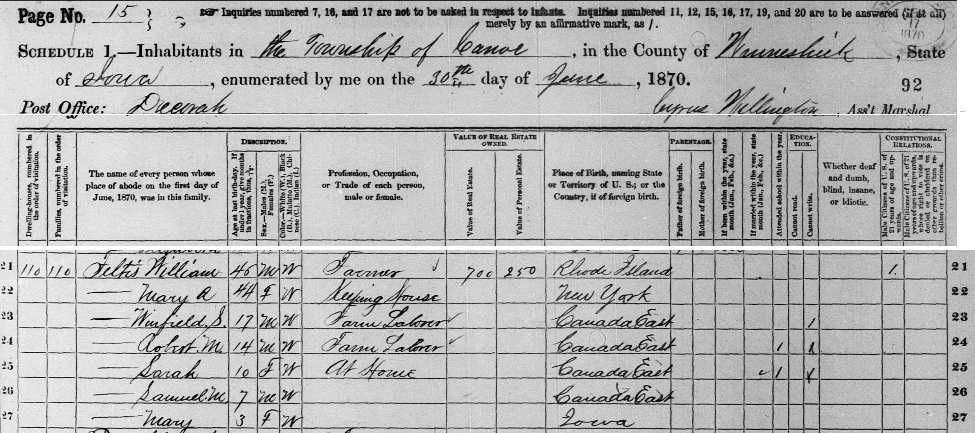 Page No. 15
☞ Inquiries numbered 7, 16, and 17 are not to be asked in respect to infants. Inquiries numbered 11, 12, 15, 16, 17, 19, and 20 are to be answered (if at all)
merely by an affirmative mark, as /.
SCHEDULE 1.—Inhabitants in the Township of Canoe, in the County of Winneshiek, State
of Iowa, enumerated by me on the 30th day of June, 1870.
92
Post Office: Decorah
Cyrus Wellington, Ass't Marshal
Dwelling-houses, numbered in the order of visitation.
Families, numbered in the order of visitation.
The name of every person whose place of abode on the first day of June, 1870, was in this family.
DESCRIPTION.
Age at last birth-day. If under 1 year, give months in fractions, thus, 3/12
Sex.—Males (M.), Females (F.)
Color.—White (W.), Black (B.), Mulatto (M.), Chinese (C.), Indian (I.)
Profession, Occupation, or Trade of each person, male or female.
VALUE OF REAL ESTATE OWNED.
Value of Real Estate.
Value of Personal Estate.
Place of Birth, naming State or Territory of U. S.; or the Country, if of foreign birth.
PARENTAGE.
Father of foreign birth.
Mother of foreign birth.
If born within the year, state month (Jan., Feb., &c.)
If married within the year, state month (Jan., Feb., &c.)
EDUCATION.
Attended school within the year.
Cannot read.
Cannot write.
Whether deaf and dumb, blind, insane, or idiotic.
CONSTITUTIONAL RELATIONS.
Male Citizens of U. S. of 21 years of age and upwards.
Male Citizens of U. S. of 21 years of age and upwards, whose right to vote is denied or abridged on other grounds than rebellion or other crime.
21 110 110 Feltis William 46 M W Farmer 700 250 Rhode Island 1 21
22 — Mary A 44 F W Keeping House New York 22
23 — Winfield S. 17 M W Farm Laborer Canada East 1 23
24 — Robert M. 14 M W Farm Laborer Canada East 1 1 24
25 — Sarah 10 F W At Home Canada East 1 25
26 — Samuel M. 7 M W Canada East 26
27 — Mary 3 F W Iowa 27